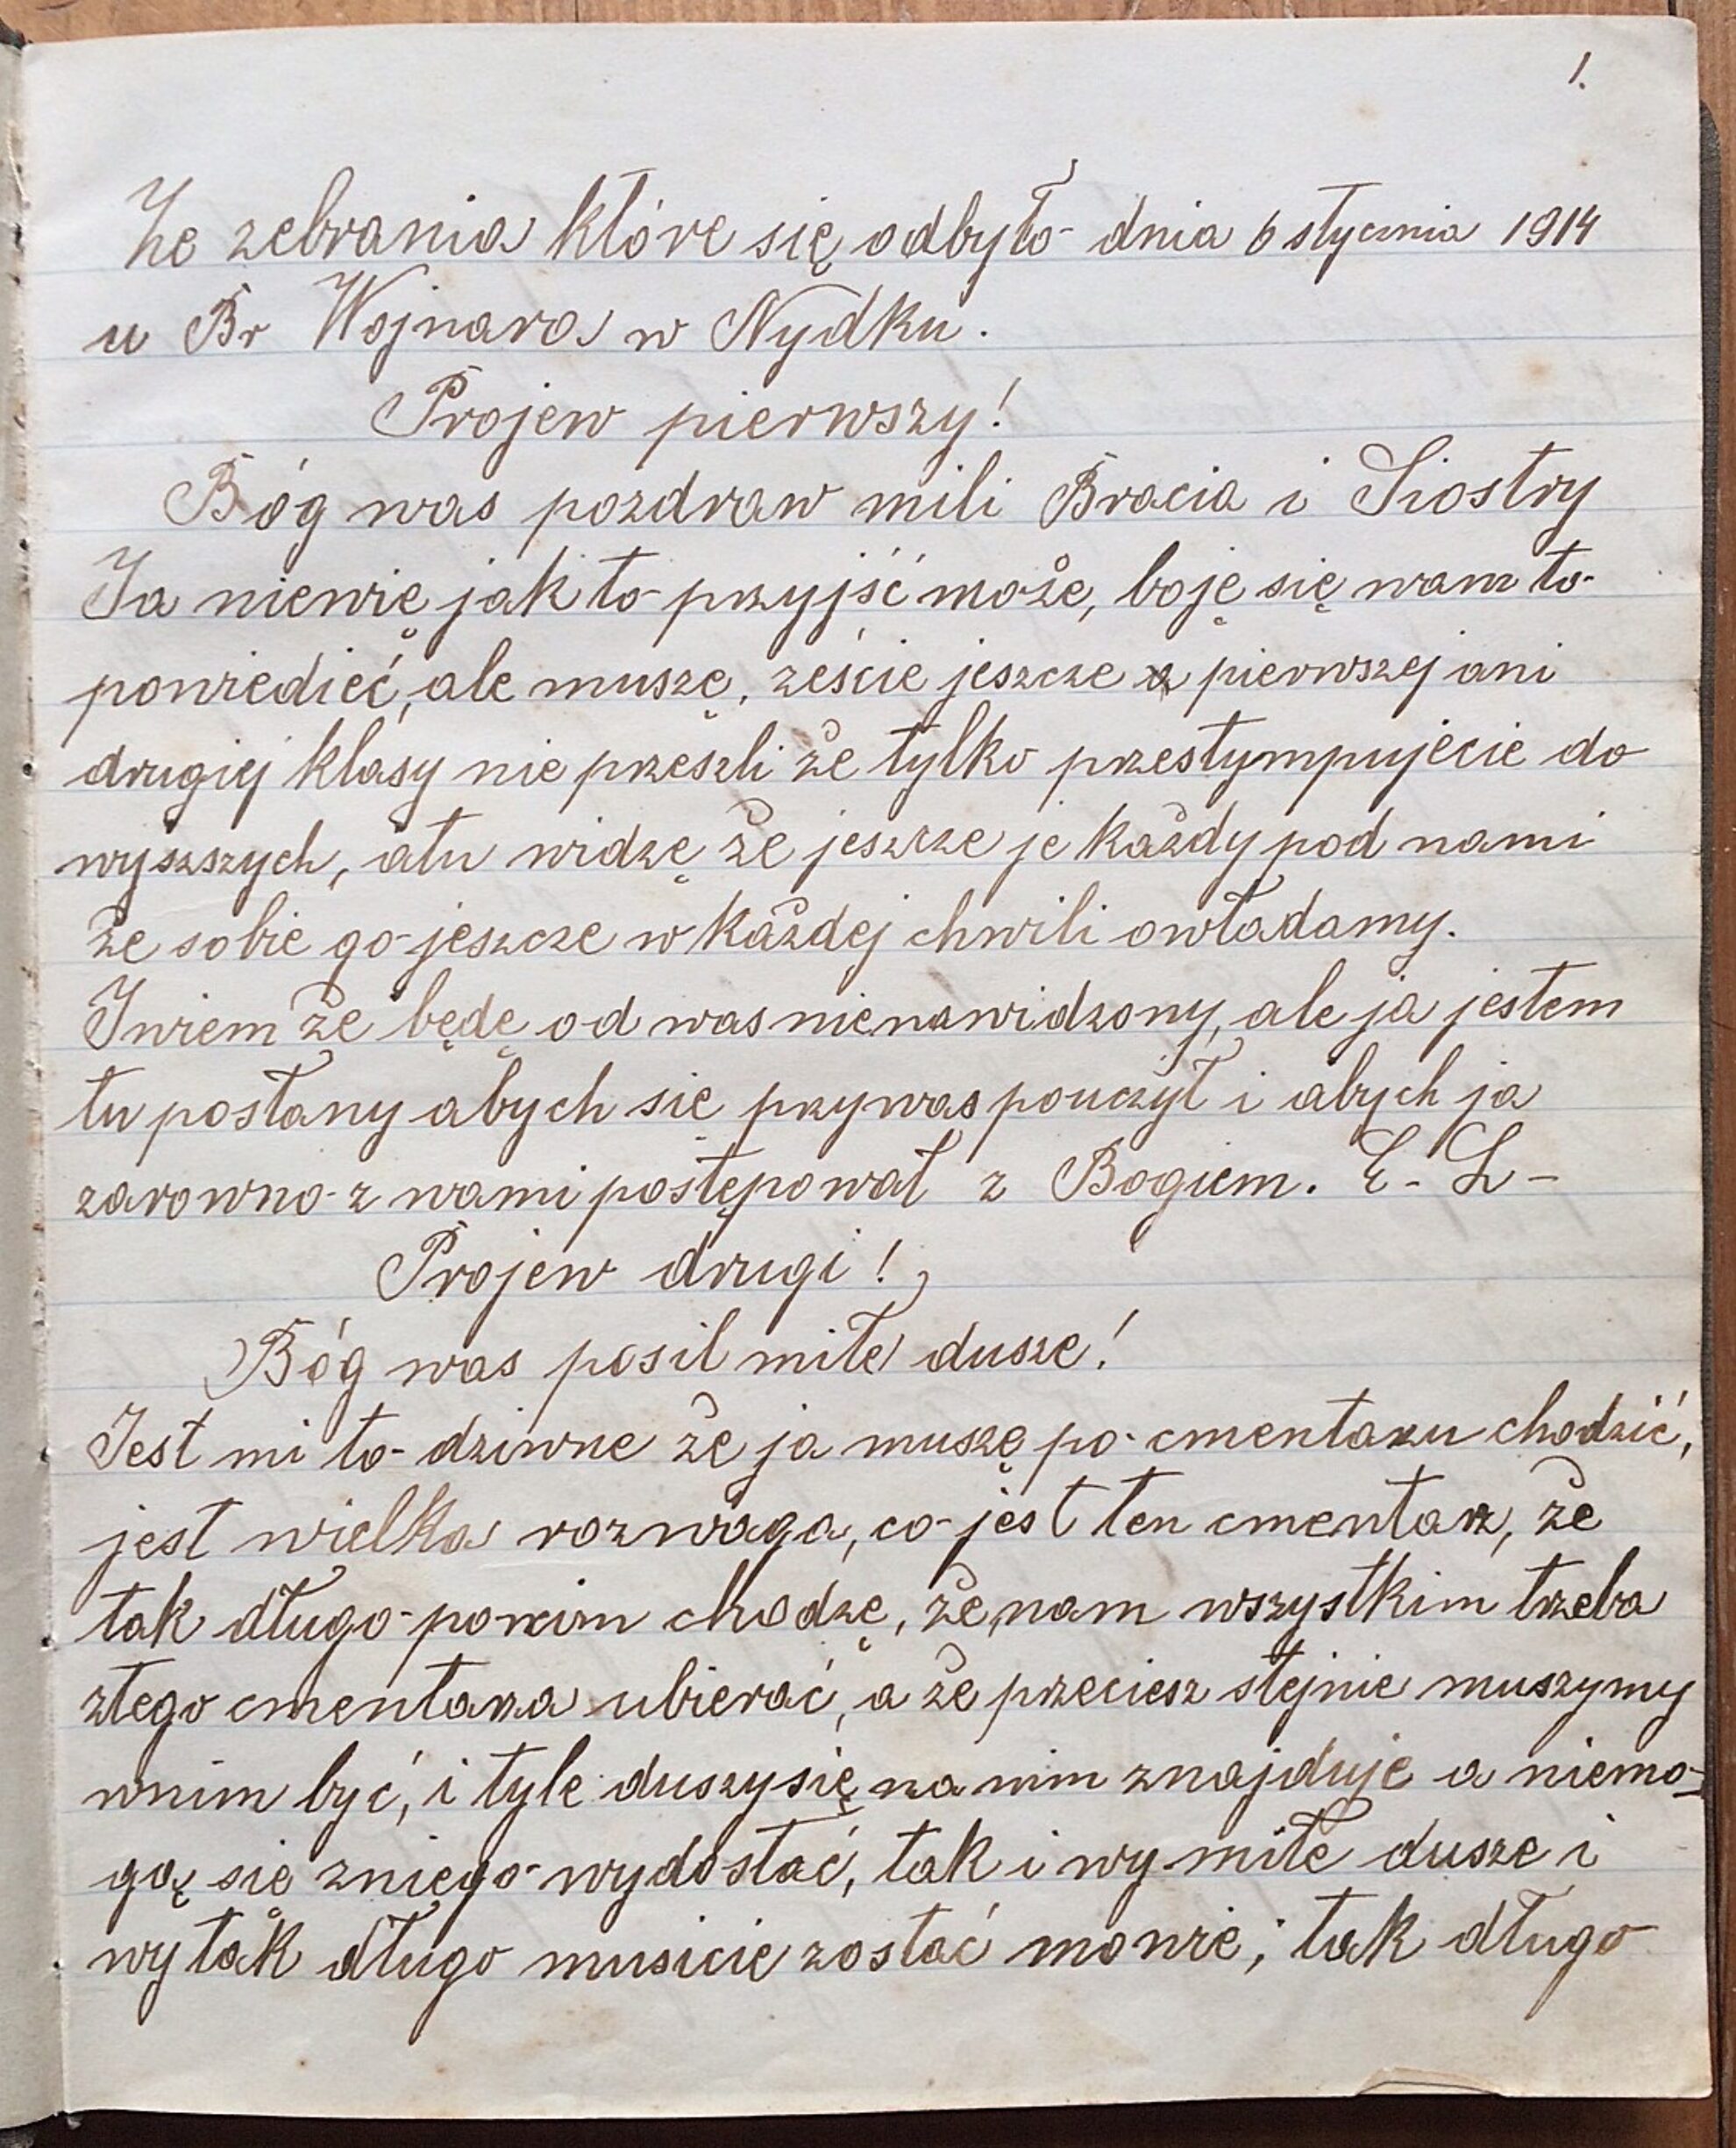 1.
Ze zebrania które się odbyło dnia 6 stycznia 1914
u Br Wojnara w Nydku.
Projew pierwszy!
Bóg was pozdraw mili Bracia i Siostry
Ja niewię jak to przyjść może, boję się wam to
powiedieć, ale muszę, żeście jeszcze pierwszej ani
drugiej klasy nie przeszli że tylko przestympujecie do
wyższych, atu widzę że jeszcze je każdy pod nami
że sobie go jeszcze w każdej chwili owładamy.
I wiem że będę od was nienawidzony, ale ja jestem
tu posłany abych się przy was pouczył i abych ja
zarowno z wami postępował z Bogiem. E- L-
Projew drugi!
Bóg was posil miłe dusze!
Jest mi to dziwne że ja muszę po cmentarzu chodzić,
jest wielka rozwaga, co jest ten cmentarz, że
tak długo ponim chodzę, że nam wszystkim trzeba
ztego cmentarza ubierać, a że przeciesz stejnie muszymy
wnim być, i tyle duszy się na nim znajduje a niemo-
gą się zniego wydostać, tak i wy miłe dusze i
wy tak długo musicie zostać mowie, tak długo